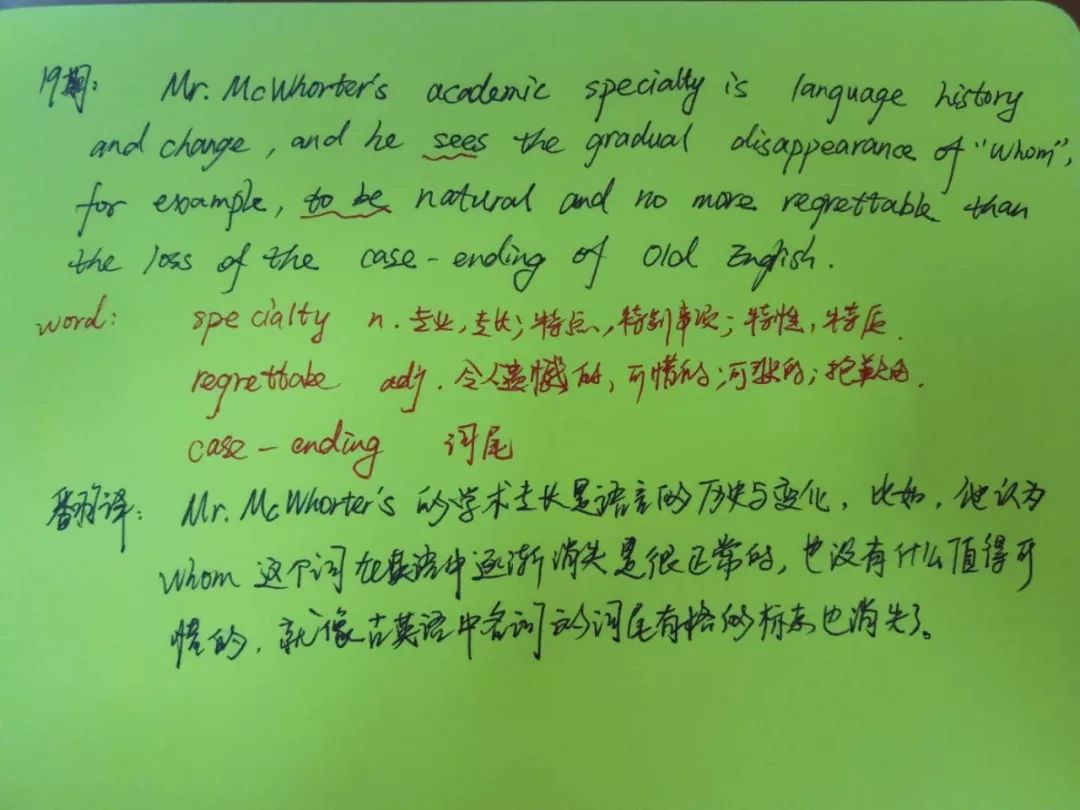 19期: Mr. McWhorter's academic specialty is language history
and change, and he sees the gradual disappearance of "whom",
for example, to be natural and no more regrettable than
the loss of the case-ending of Old English.
word: specialty n. 专业,专长;特点,特别事项;特性,特质.
regrettable adj. 令人遗憾的,可惜的;可悲的;抱歉的.
case-ending 词尾
翻译: Mr. McWhorter's 的学术专长是语言的历史与变化, 比如, 他认为
whom 这个词在英语中逐渐消失是很正常的, 也没有什么值得可
惜的, 就像古英语中名词的词尾有格的标志也消失了。